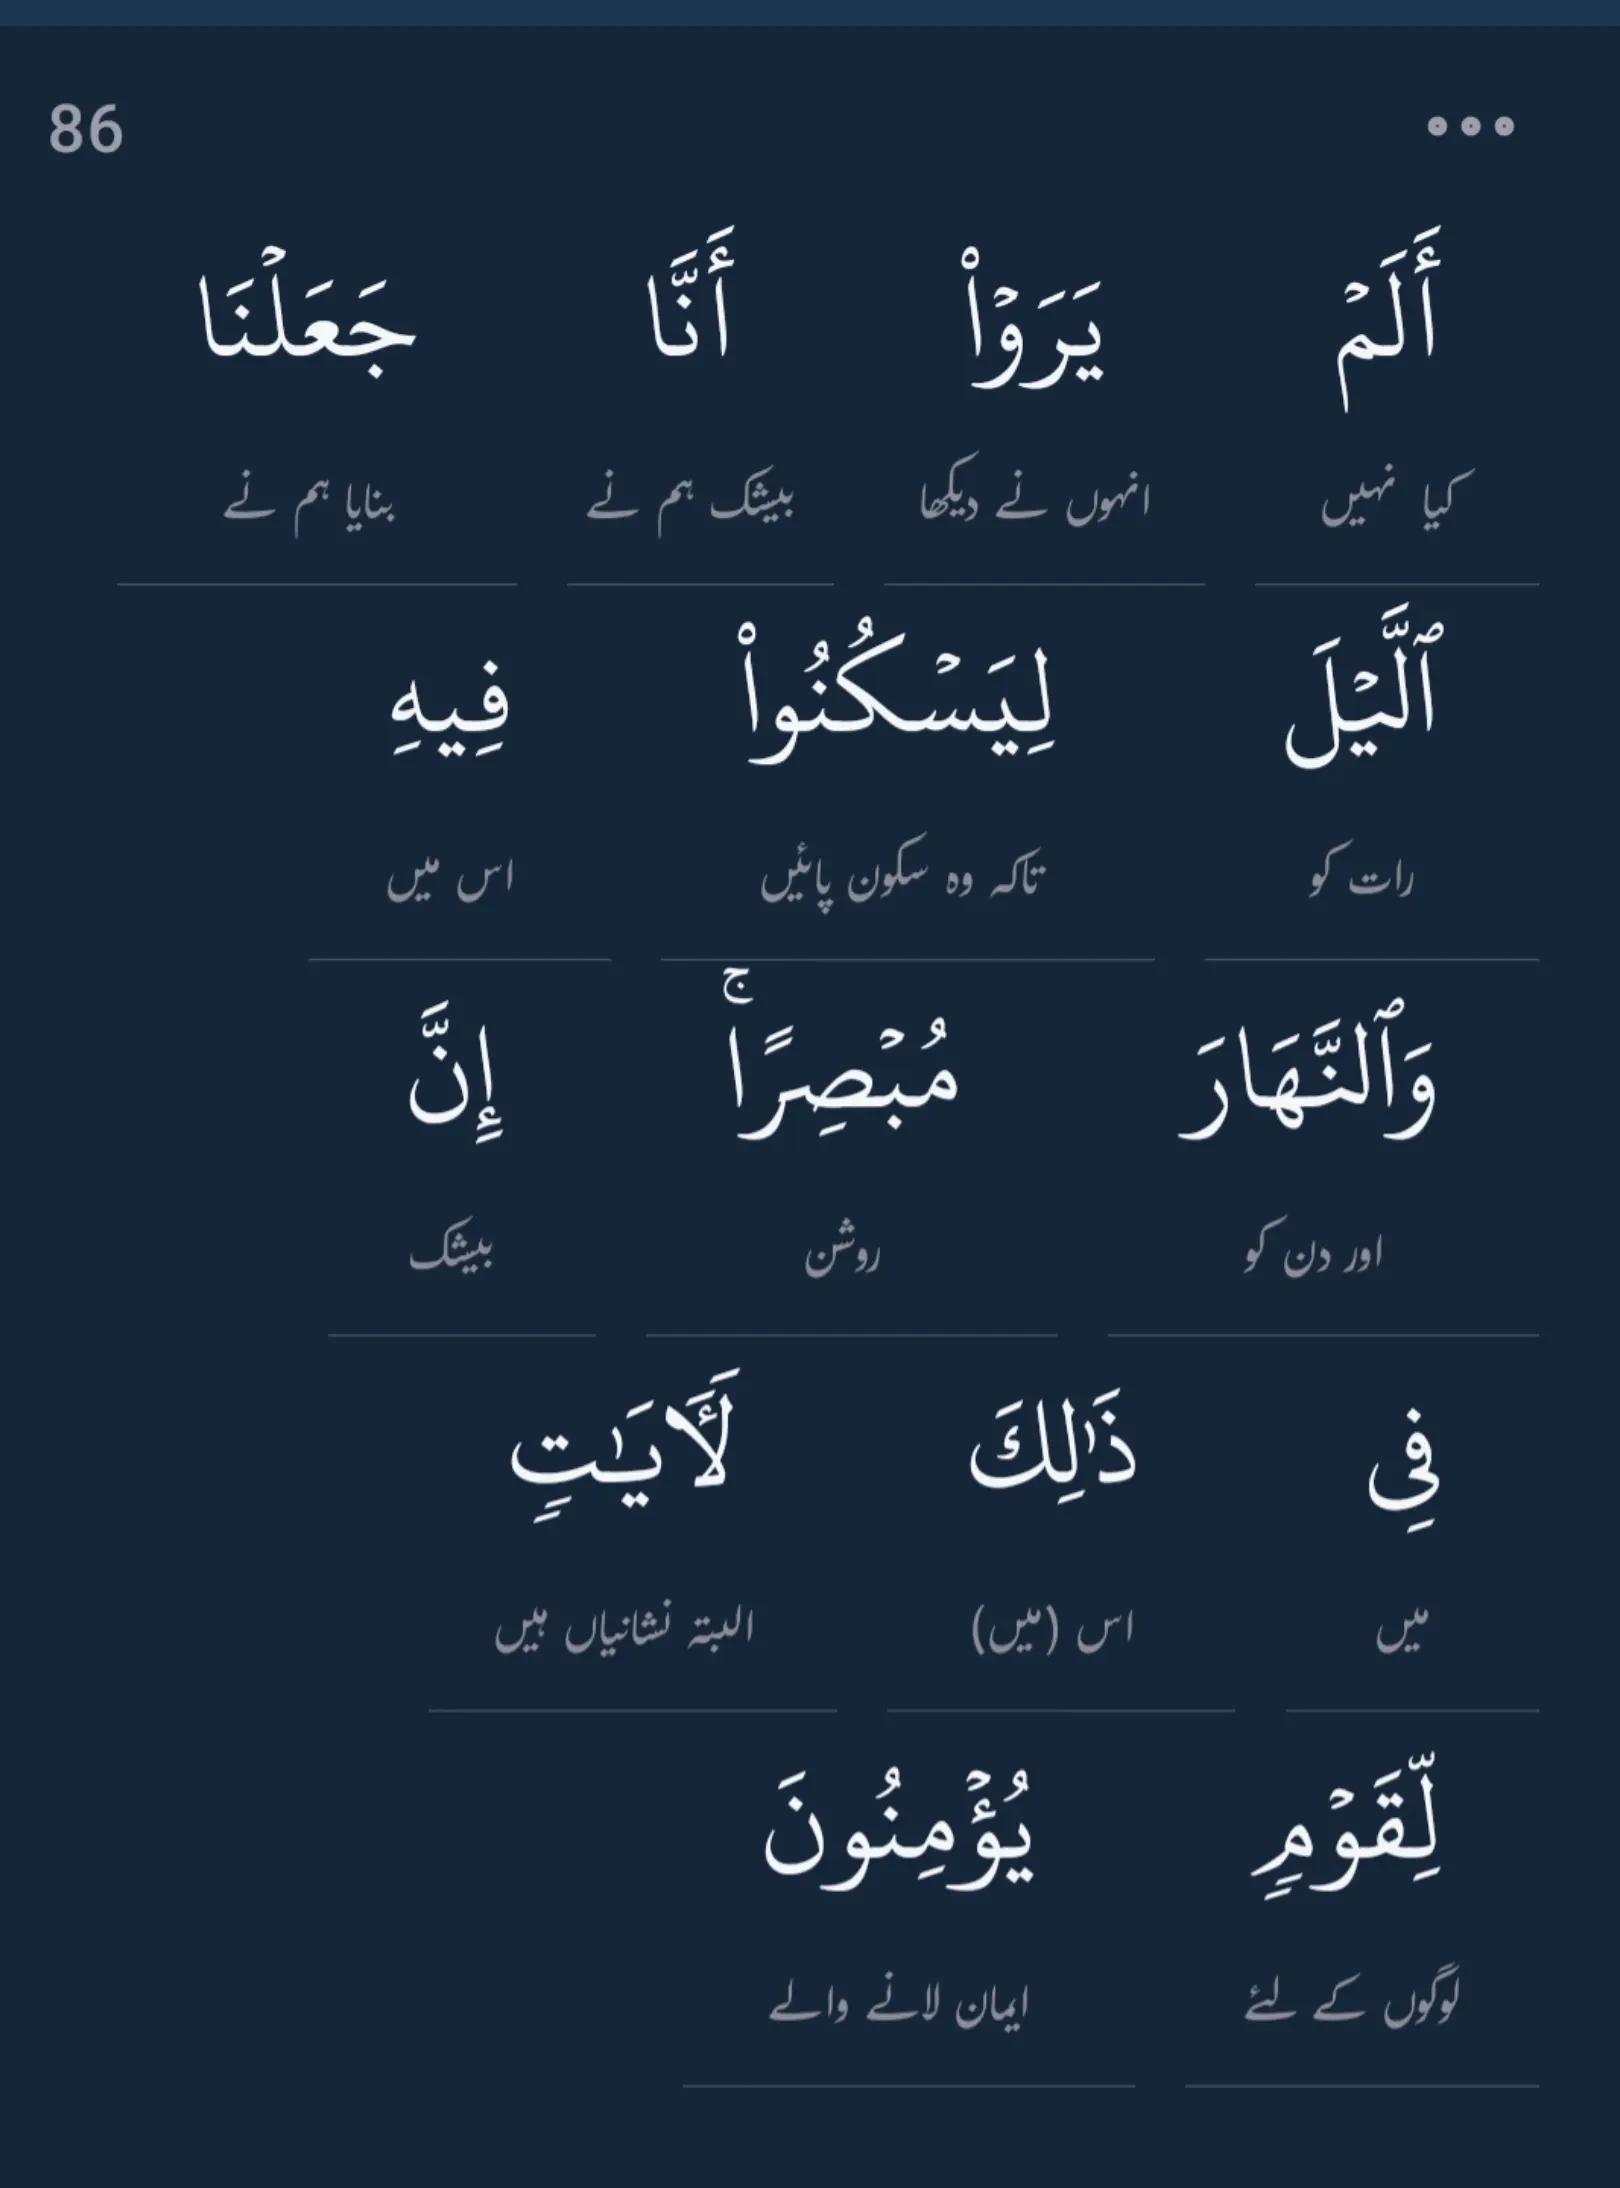 86
أَلَمۡ يَرَوۡاْ أَنَّا جَعَلۡنَا
کیا نہیں انہوں نے دیکھا بیشک ہم نے بنایا ہم نے
ٱلَّيۡلَ لِيَسۡكُنُواْ فِيهِ
رات کو تاکہ وہ سکون پائیں اس میں
وَٱلنَّهَارَ مُبۡصِرًاۚ إِنَّ
اور دن کو روشن بیشک
فِي ذَٰلِكَ لَأٓيَٰتٖ
میں اس (میں) البتہ نشانیاں ہیں
لِّقَوۡمٖ يُؤۡمِنُونَ
لوگوں کے لئے ایمان لانے والے